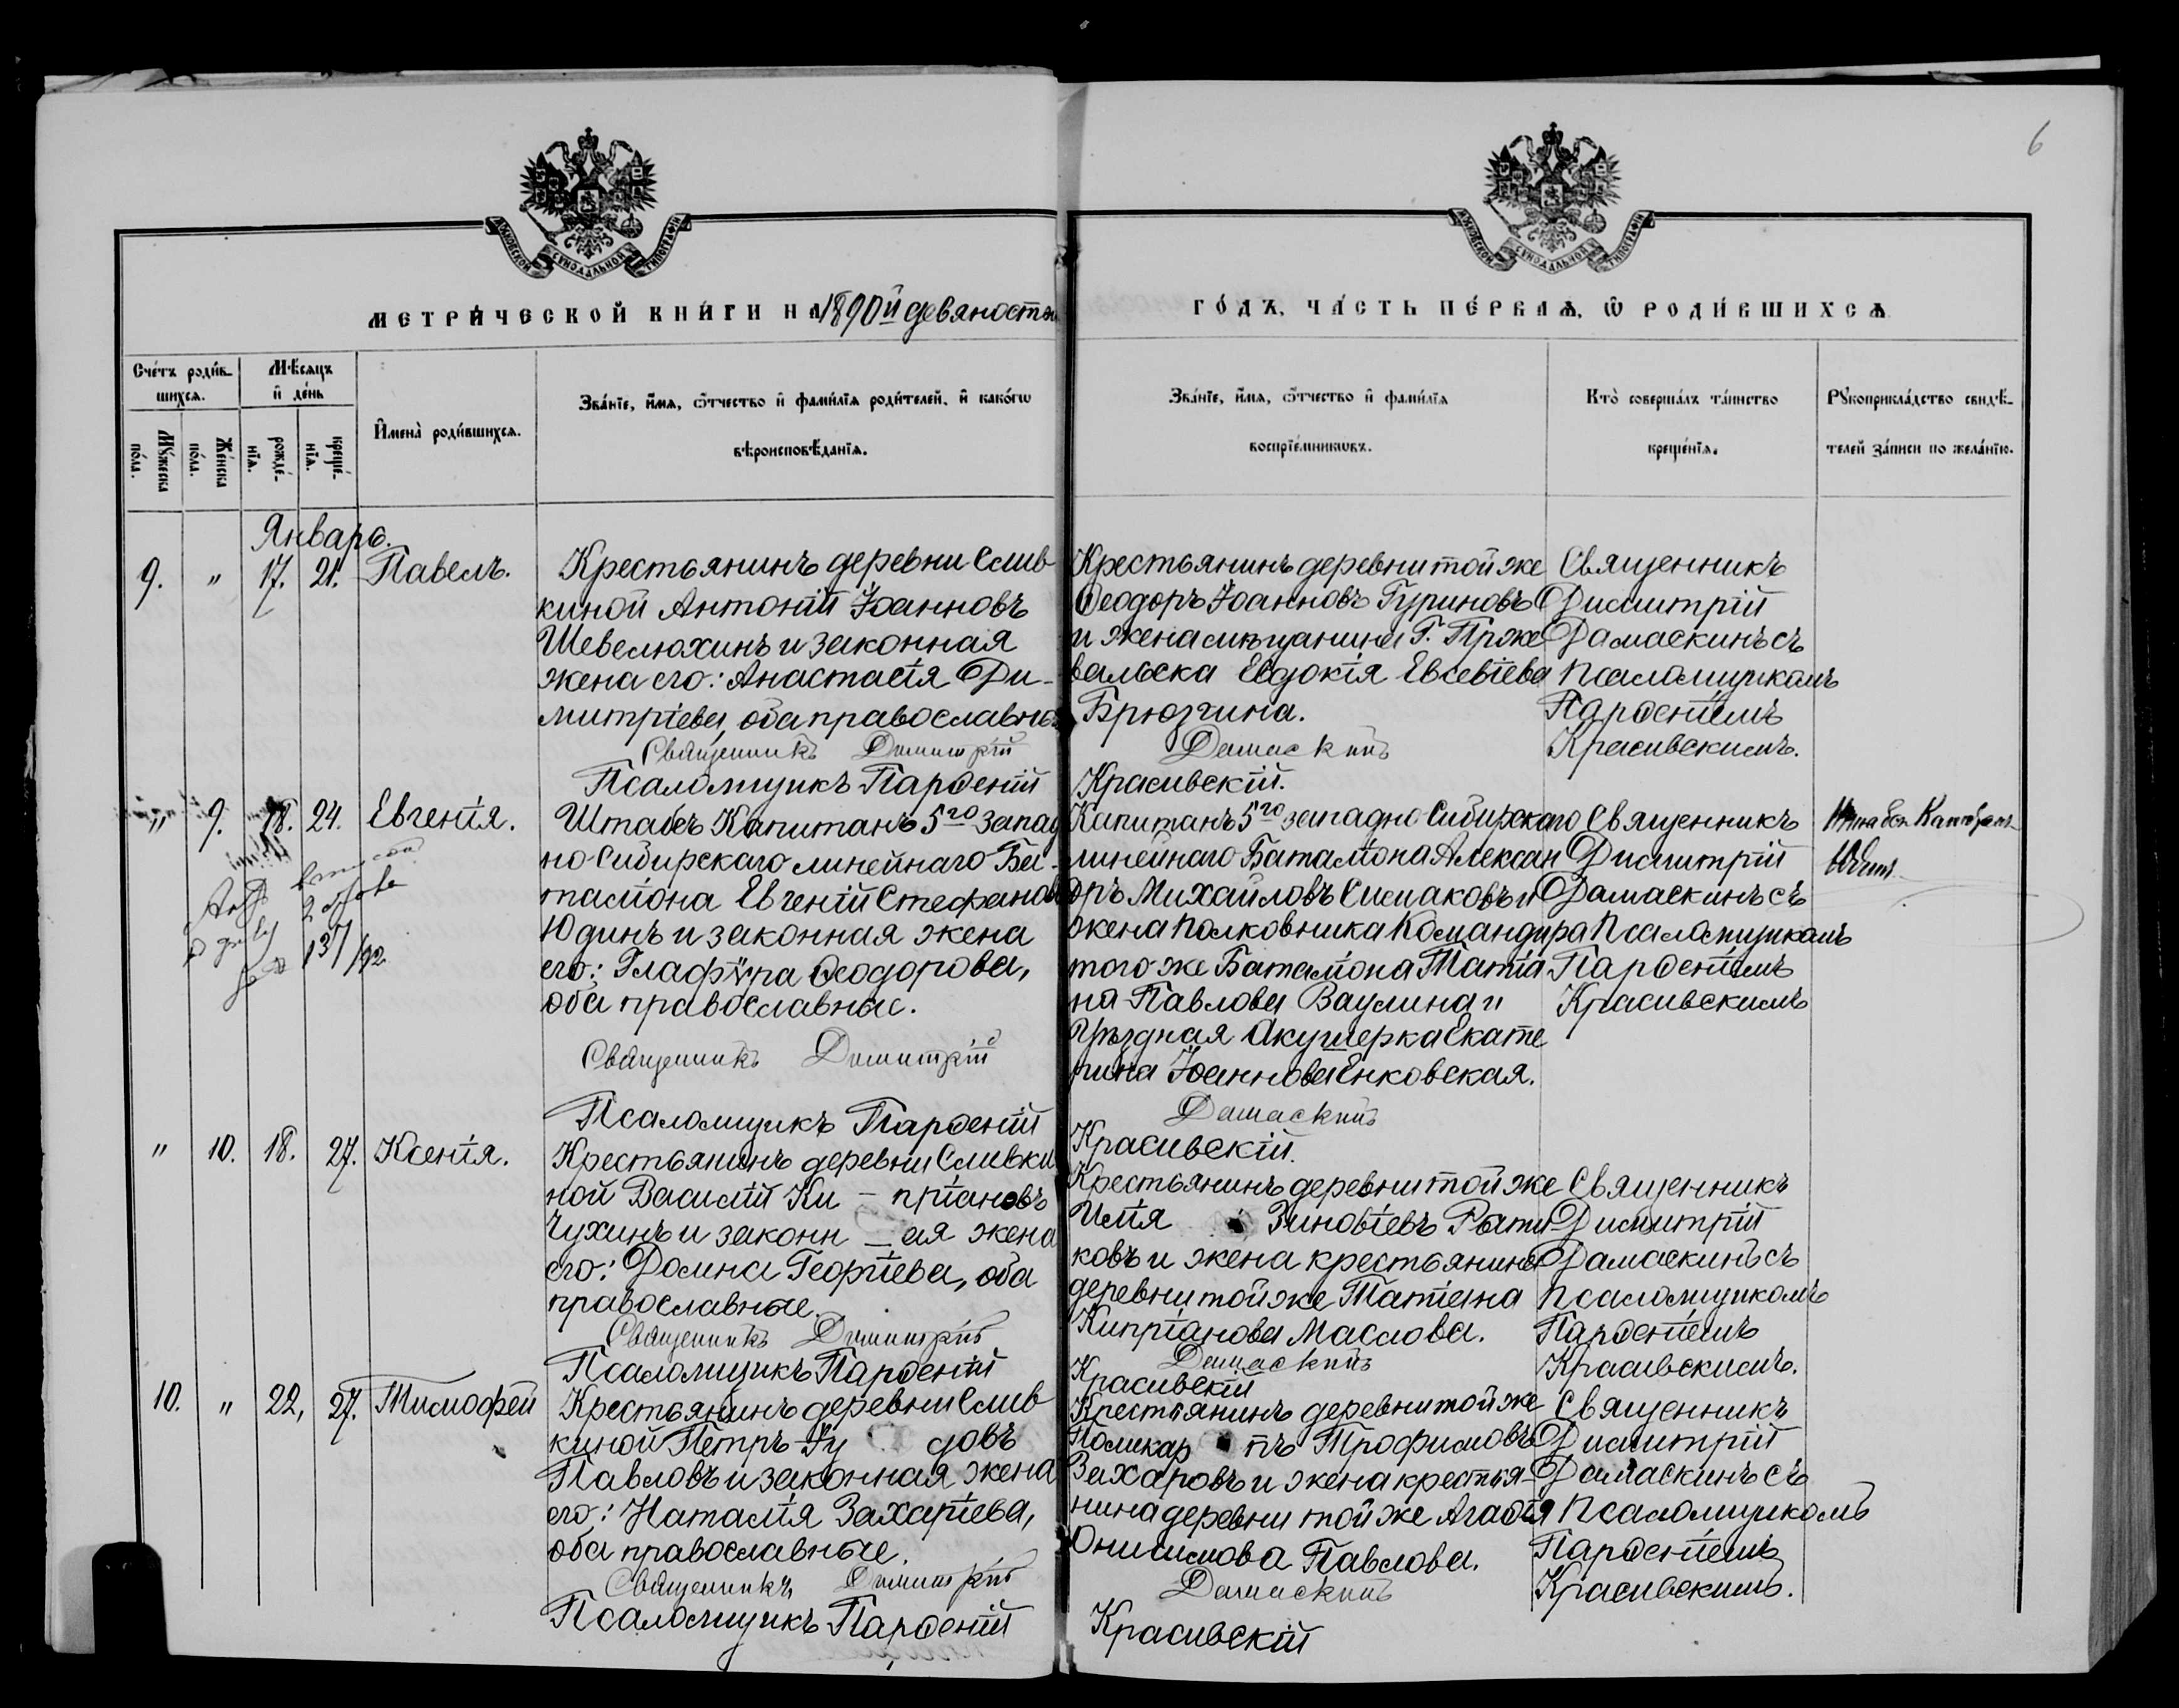 6
МОСКОВСКОЙ СѴНОДАЛЬНОЙ ТИПОГРАФІИ
МОСКОВСКОЙ СѴНОДАЛЬНОЙ ТИПОГРАФІИ
МЕТРИ́ЧЕСКОЙ КНИ́ГИ НА 1890й девяносты
ГО́ДЪ, ЧА́СТЬ ПЕ́РВАѦ, Ѡ РОДИ́ВШИХСѦ
Сче́тъ роди́в-
шихсѧ.
Мꙋ́жеска
по́ла.
Же́нска
по́ла.
Мѣ́сѧцъ
и҆ де́нь
рожде́-
нїѧ.
креще́-
нїѧ.
И҆мена̀ роди́вшихсѧ.
Зва́нїе, и҆́мѧ, ѻ҆́тчество и҆ фами́лїѧ роди́телей, и҆ како́гѡ
вѣроисповѣ́данїѧ.
Зва́нїе, и҆́мѧ, ѻ҆́тчество и҆ фами́лїѧ
воспрїе́мникѡвъ.
Кто̀ соверша́лъ та́инство
креще́нїѧ.
Рꙋкоприкла́дство свидѣ́-
телей за́писи по жела́нїю.
Январь.
9. " 17. 21. Павелъ.
Крестьянинъ деревни Слив
киной Антоній Іоанновъ
Шевелюхинъ и законная
жена его: Анастасія Ди-
митріева, оба православные
Священникъ Димитрій
Псаломщикъ Парѳеній
Крестьянинъ деревни той же
Ѳеодоръ Іоанновъ Гуриновъ
и жена мѣщанина Г. Прже
вальска Евдокія Евсевіева
Брюзгина.
Дамаскинъ
Красивскій.
Священникъ
Димитрій
Дамаскинъ съ
Псаломщикомъ
Парѳеніемъ
Красивскимъ.
" 9. 18. 24. Евгенія.
137/92
Штабсъ Капитанъ 5го Запад
но-Сибирскаго линейнаго Ба-
таліона Евгеній Стефановъ
Юдинъ и законная жена
его: Глафѵра Ѳеодорова,
оба православные.
Священникъ Димитрій
Псаломщикъ Парѳеній
Капитанъ 5го западно-Сибирскаго
линейнаго Баталіона Алексан
дръ Михайловъ Симаковъ и
жена Полковника Командира
того же Баталіона Татія
на Павлова Ваулина и
Уѣздная Акушерка Екате
рина Іоаннова Енковская.
Дамаскинъ
Красивскій.
Священникъ
Димитрій
Дамаскинъ съ
Псаломщикомъ
Парѳеніемъ
Красивскимъ
" 10. 18. 27. Ксенія.
Крестьянинъ деревни Сливки
ной Василій Ки - пріановъ
Чухинъ и законн - ая жена
его: Домна Георгіева, оба
православные.
Священникъ Димитрій
Псаломщикъ Парѳеній
Крестьянинъ деревни той же
Илія Зиновіевъ
ковъ и жена крестьянина
деревни той же Татіана
Кипріанова Маслова.
Дамаскинъ
Красивскій
Священникъ
Димитрій
Дамаскинъ съ
Псаломщикомъ
Парѳеніемъ
Красивскимъ.
10. " 22, 27. Тимофей
Крестьянинъ деревни Слив
киной Петръ Іу довъ
Павловъ и законная жена
его: Наталія Захаріева,
оба православные.
Священникъ Димитрій
Псаломщикъ Парѳеній
Крестьянинъ деревни той же
Поликар пъ Трофимовъ
Захаровъ и жена крестья-
нина деревни той же Агафія
Онисимова Павлова.
Дамаскинъ
Красивскій
Священникъ
Димитрій
Дамаскинъ съ
Псаломщикомъ
Парѳеніемъ
Красивскимъ.